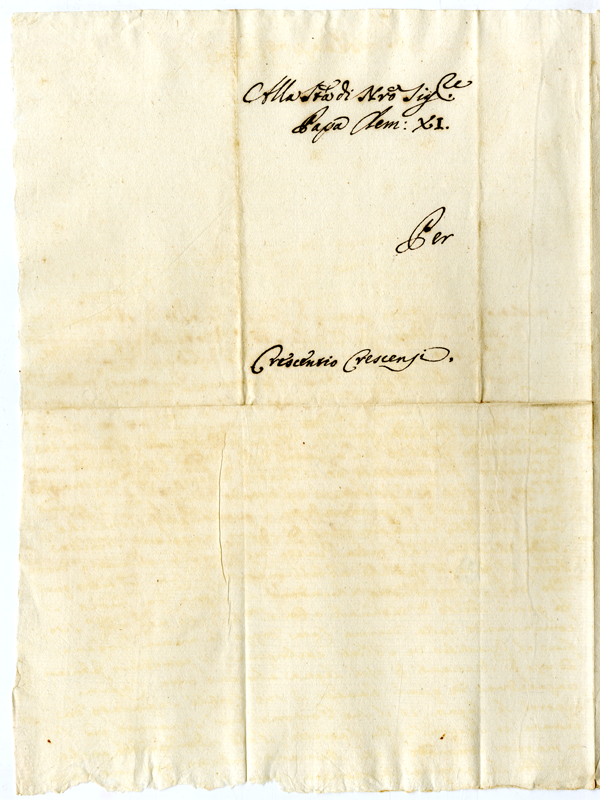 Alla Stà di Nrõ Sigre
Papa Clem: XI.
Per
Crescentio Crescenzi.